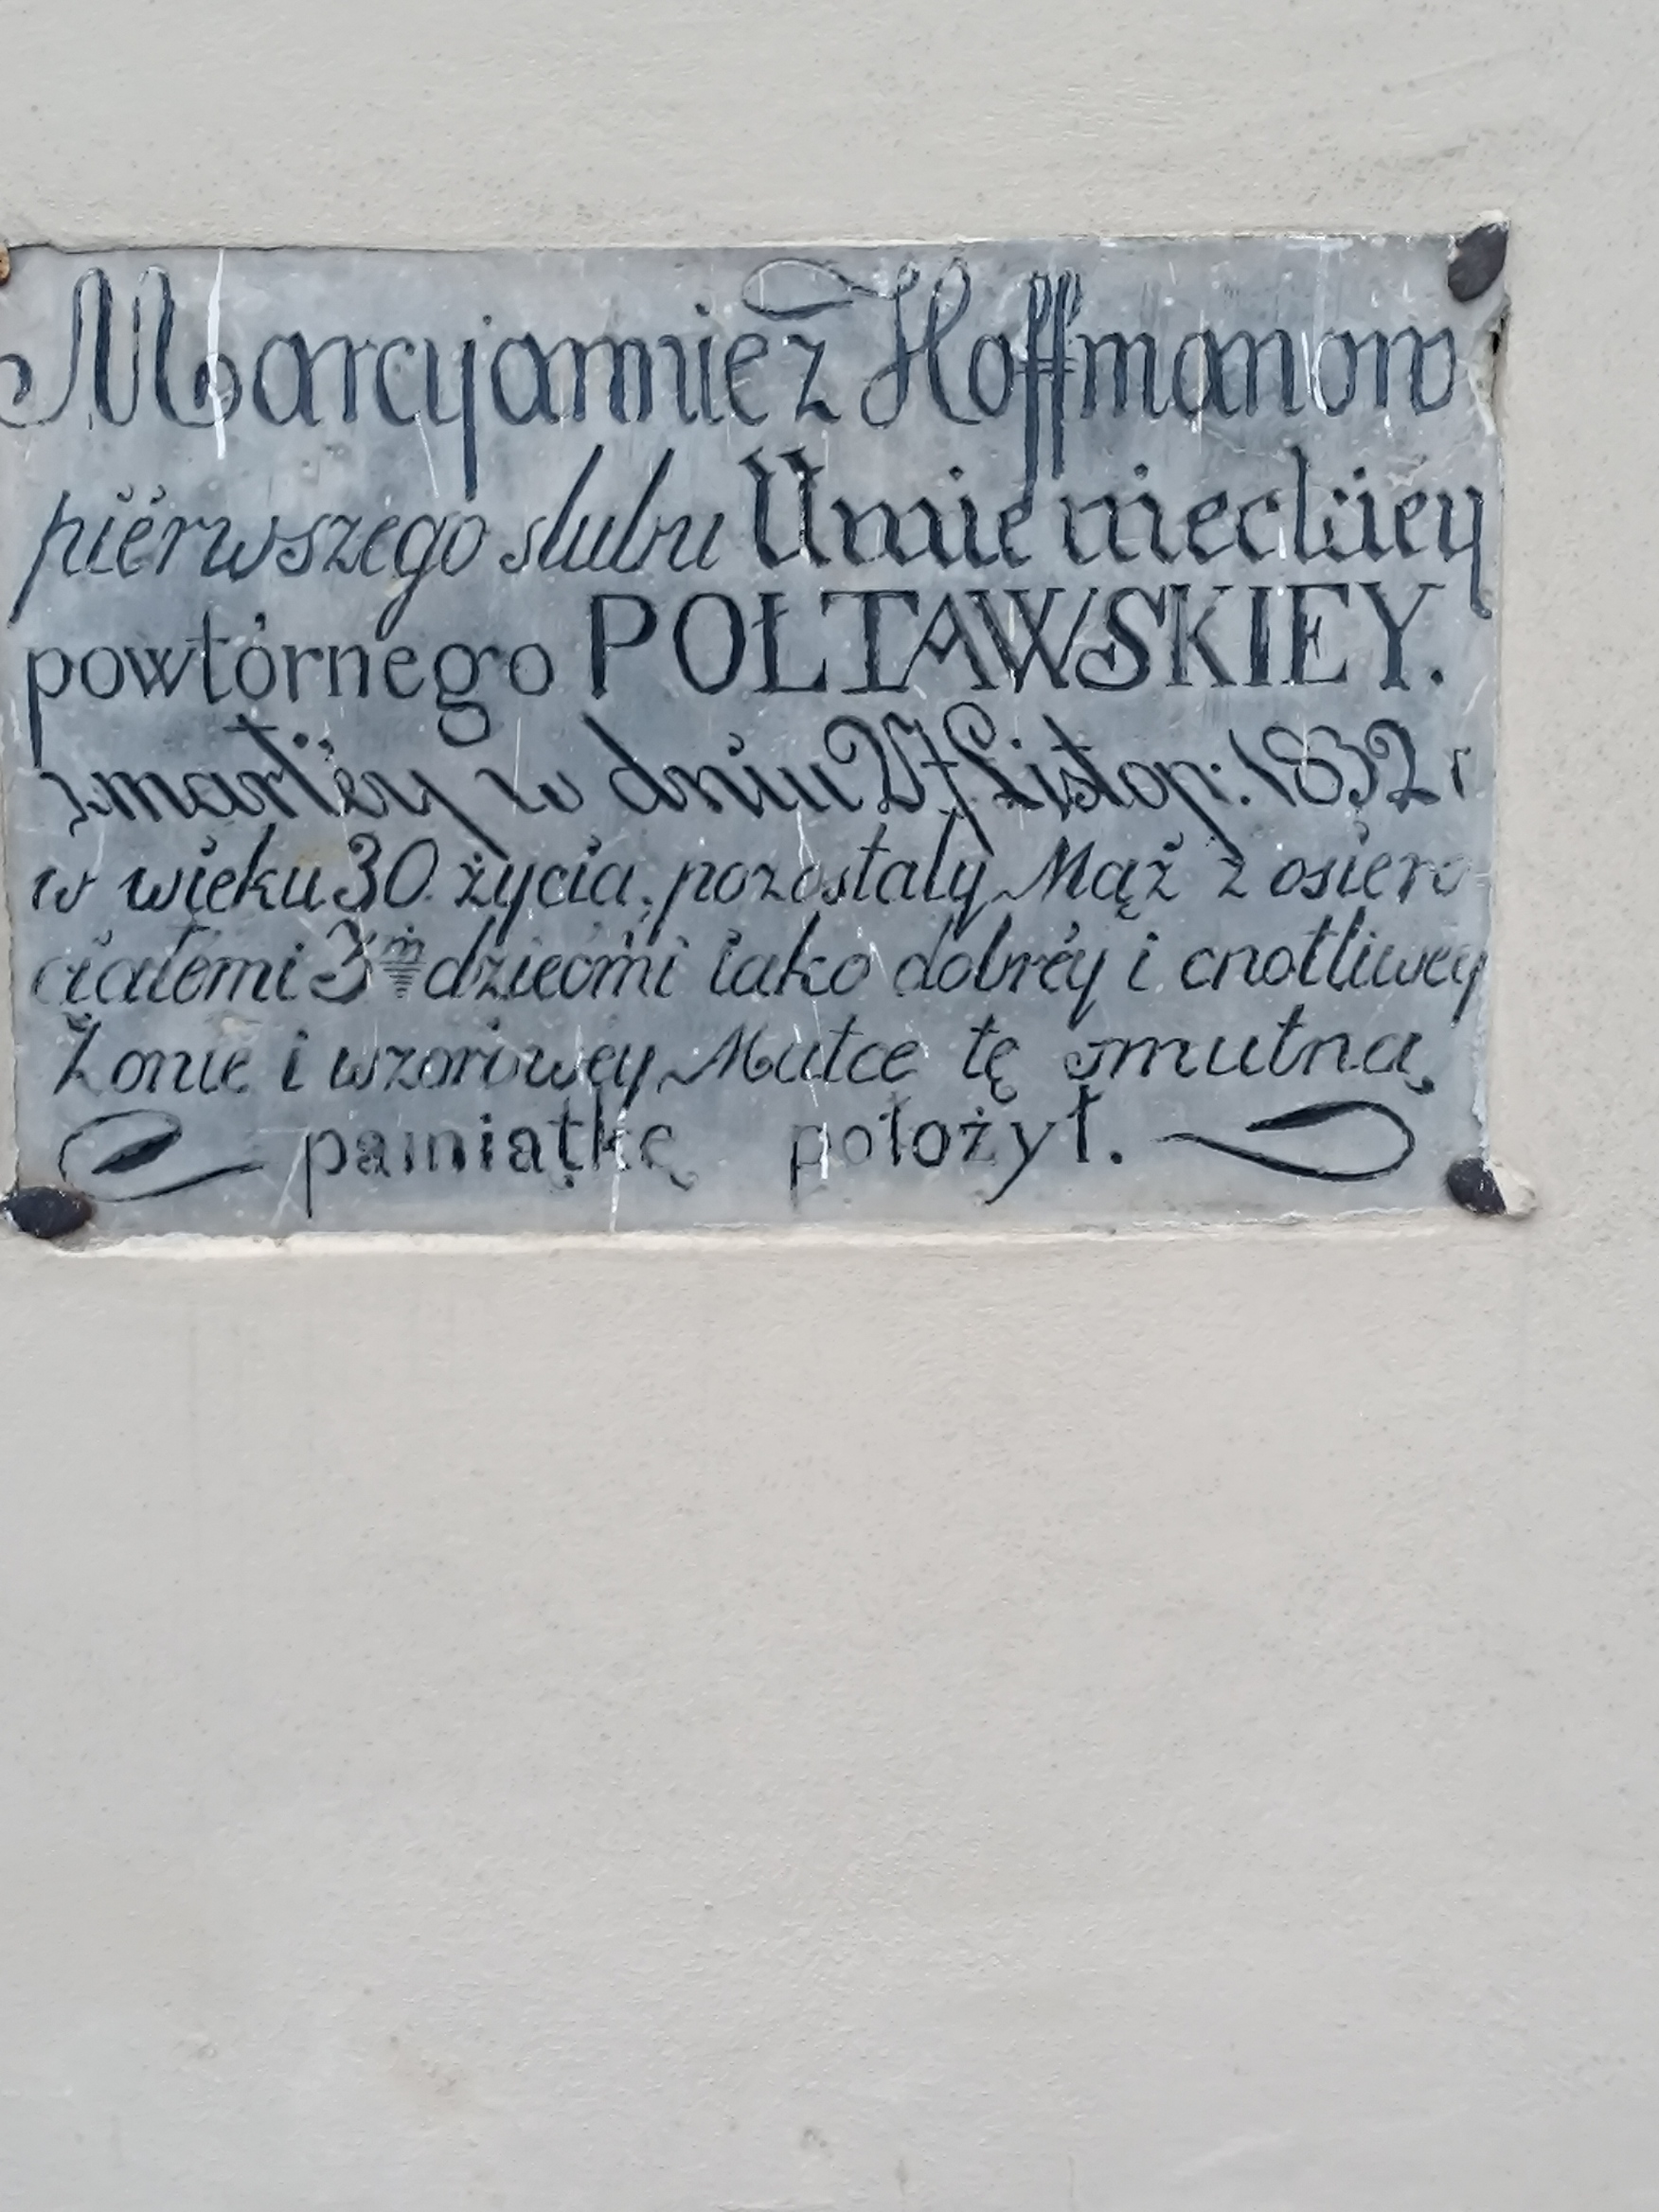 Marcyannie z Hoffmanow
piérwszego slubu Umienieckiey
powtórnego POŁTAWSKIEY.
zmartéy w dniu 27 Listop: 1832 r
w wieku 30. życia, pozostały Mąż z osiero
ciałemi 3m dziećmi iako dobréy i cnotliwey
Żonie i wzorowey Matce tę smutną
pamiątkę położył.